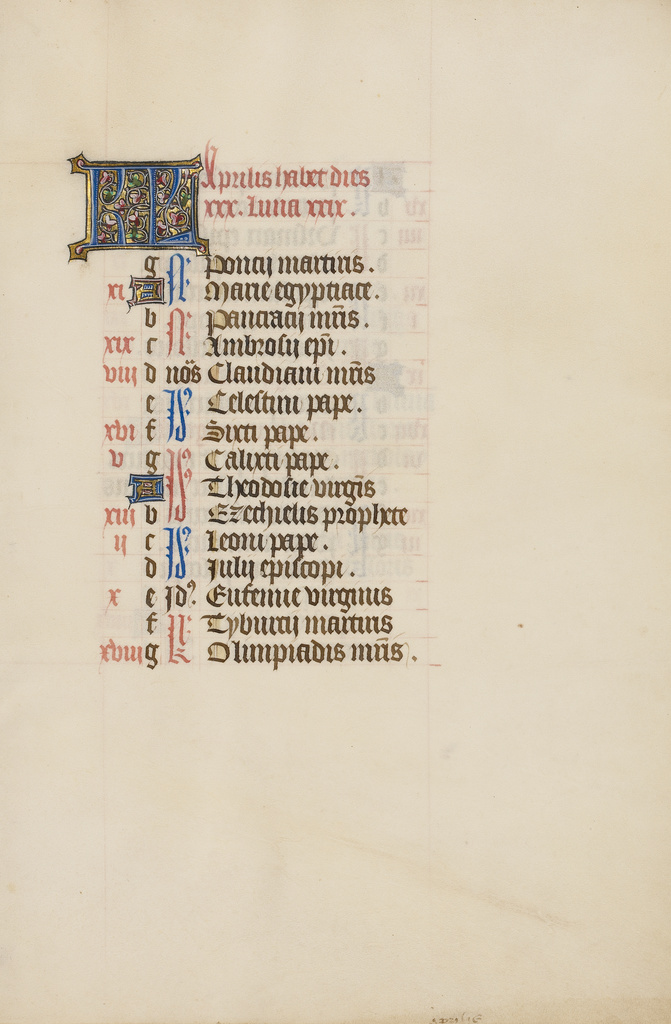 KL Aprilis habet dies
xxx. Luna xxix.
g N Poncij martiris.
xi A N Marie egyptiace.
b N Pancracij mris.
xix c N Ambrosij epi.
viij d nos Claudiani mris
e Id Celestini pape.
xvi f Id Sixti pape.
v g Id Calixti pape.
A Id Theodosie virgis
xiij b Id Ezechielis prophete
ij c Id Leoni pape.
d Id Julij episcopi.
x e Jd. Eufemie virginis
f N Tyburcij martiris
xviij g K Olimpiadis mris.